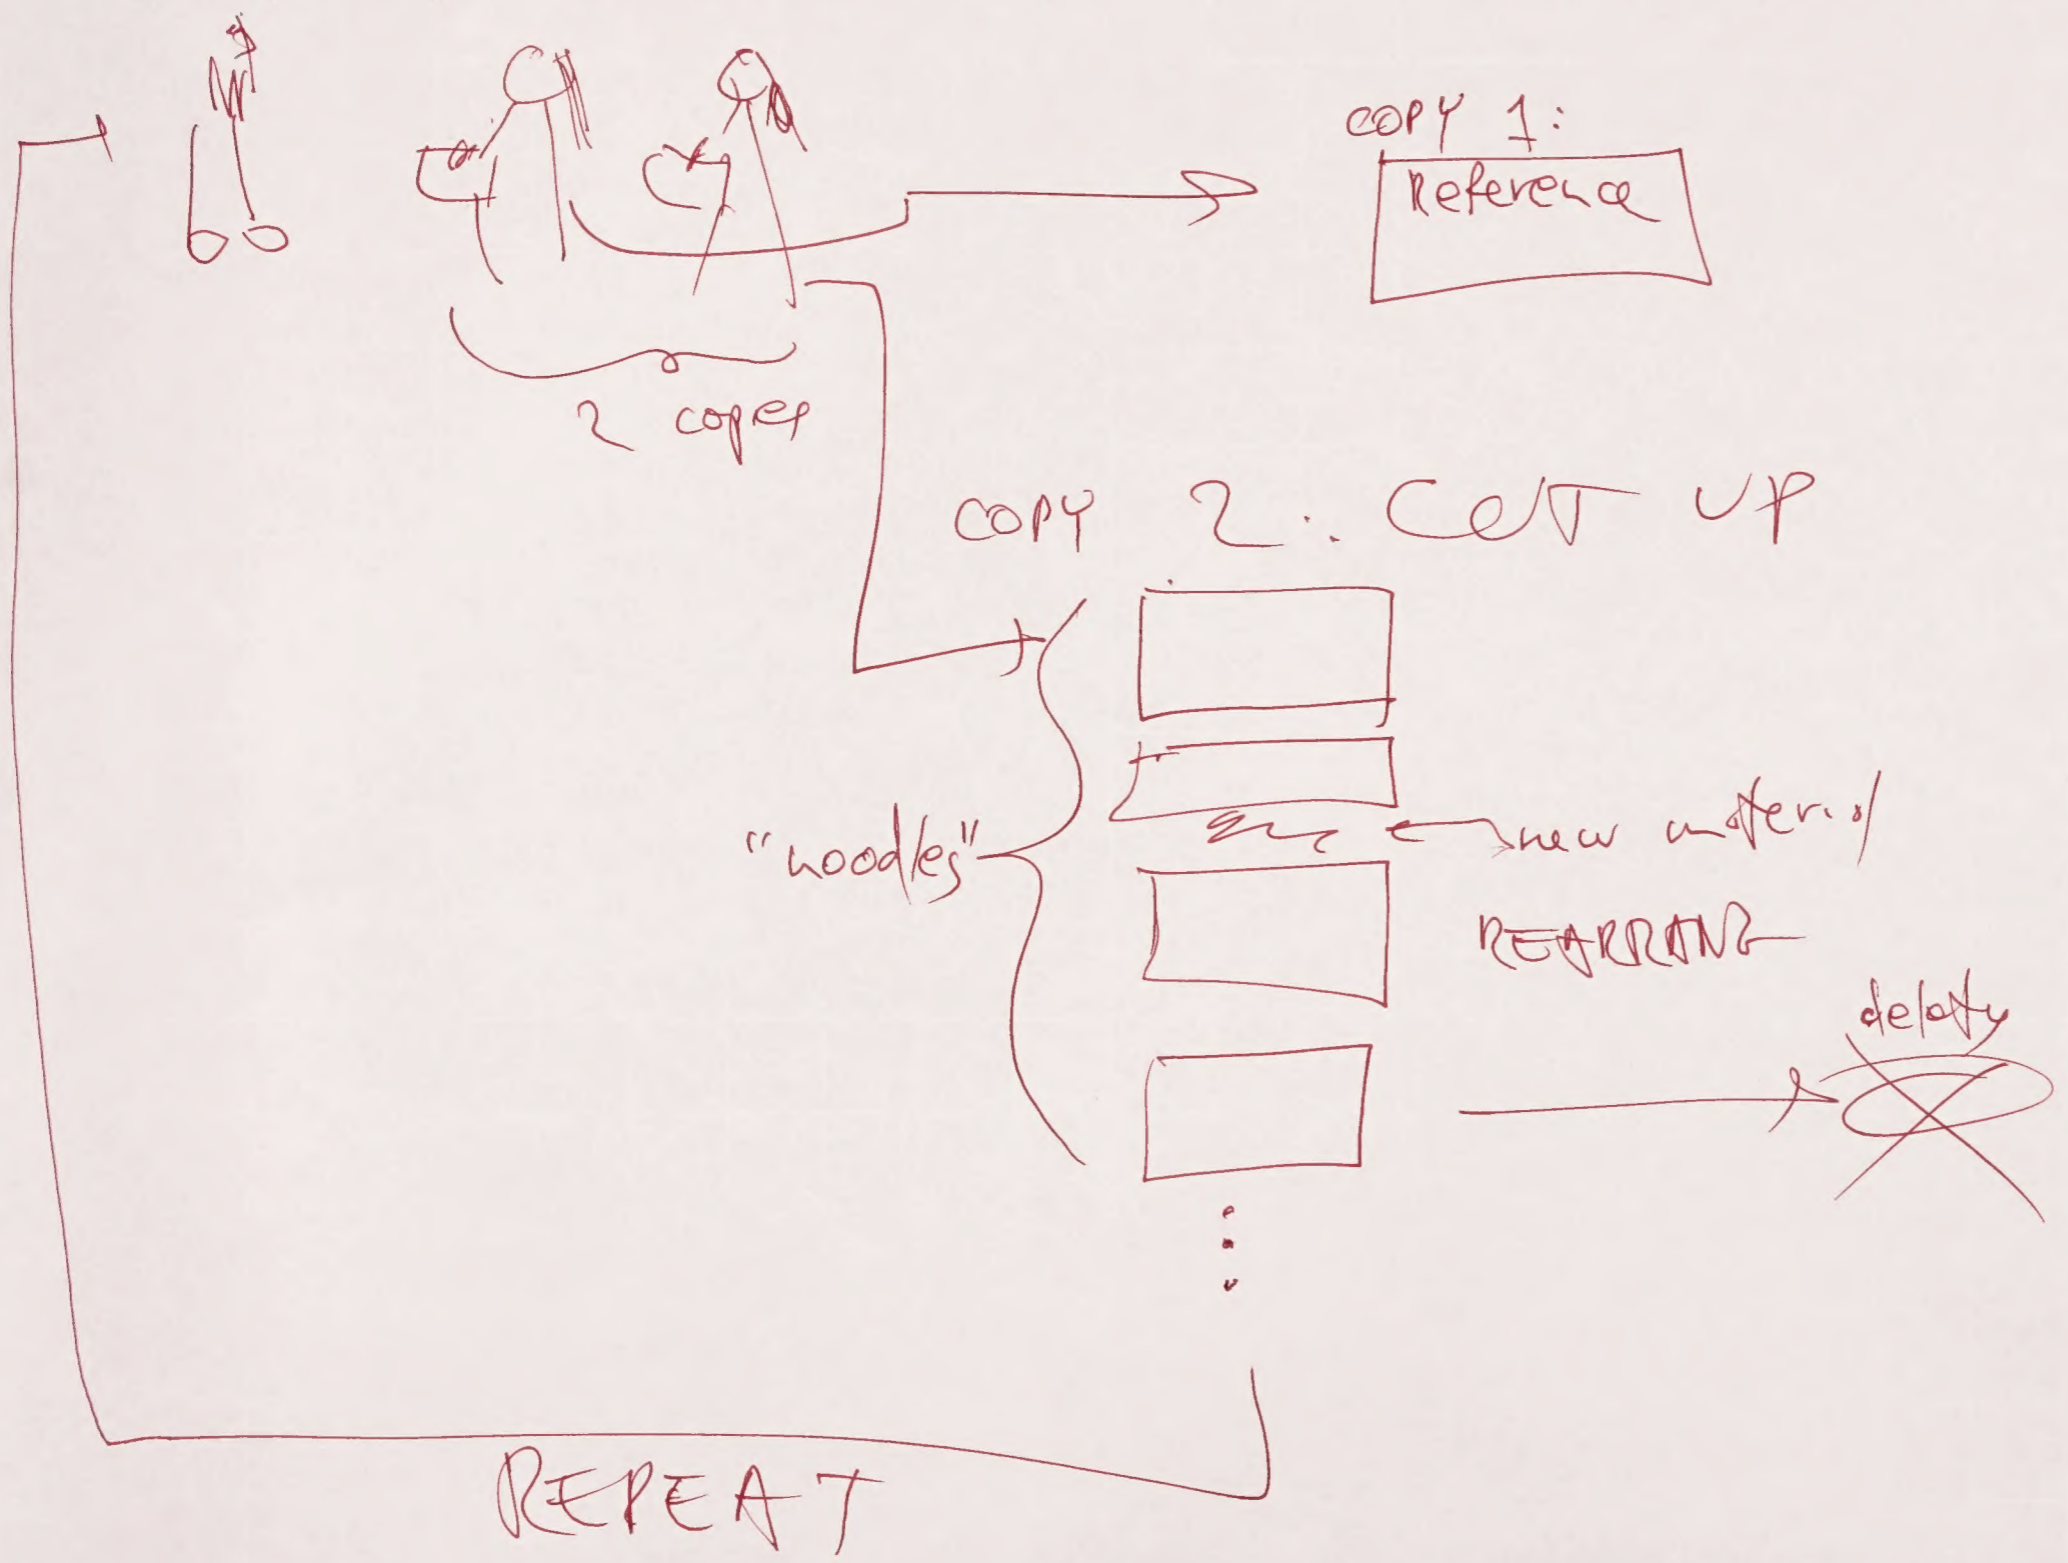 COPY 1:
Reference
2 copies
COPY 2: CUT UP
"noodles"
new material
REARRANGE
REPEAT